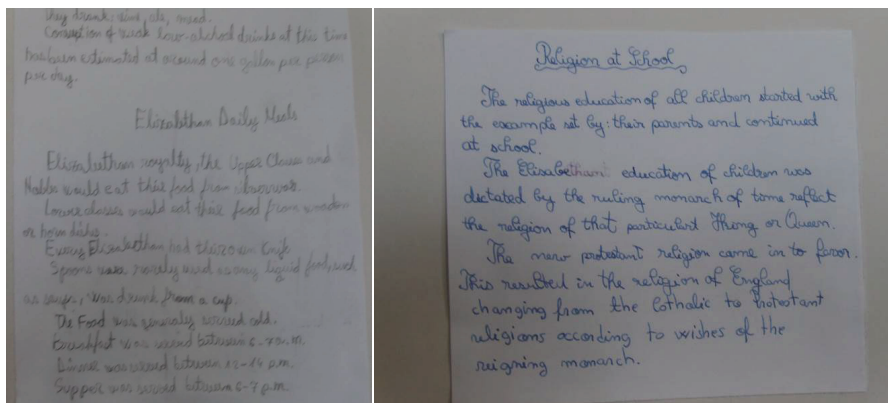 They drank: wine, ale, mead.
Consuption of weak low-alchool drinks at this time
has been estimated at around one gallon per person
per day.
Elizabethan Daily Meals
Elizabethan royalty, the Upper Classe and
Nobles would eat their food from
Lower classes would eat their food from wooden
or horn dishes.
Every Elizabethan had their own Knife
Spoons were rarely used as any liquid food, such
as soups, was drunk from a cup.
The Food was generaly served cold.
Breakfast was served between 6-7 a.m.
Dinner was served between p.m.
Supper was served between 6-7 p.m.
Religion at School
The religious education of all children started with
the example set by: their parents and continued
at school.
The Elisabethant education of children was
dictated by the ruling monarch of tome reflect
the religion of that particulart Thong or Queen.
The new protestant religion came in to favor.
This resulted in the religion of England
changing from the Catholic to Protestant
religions according to wishes of the
reigning monarch.